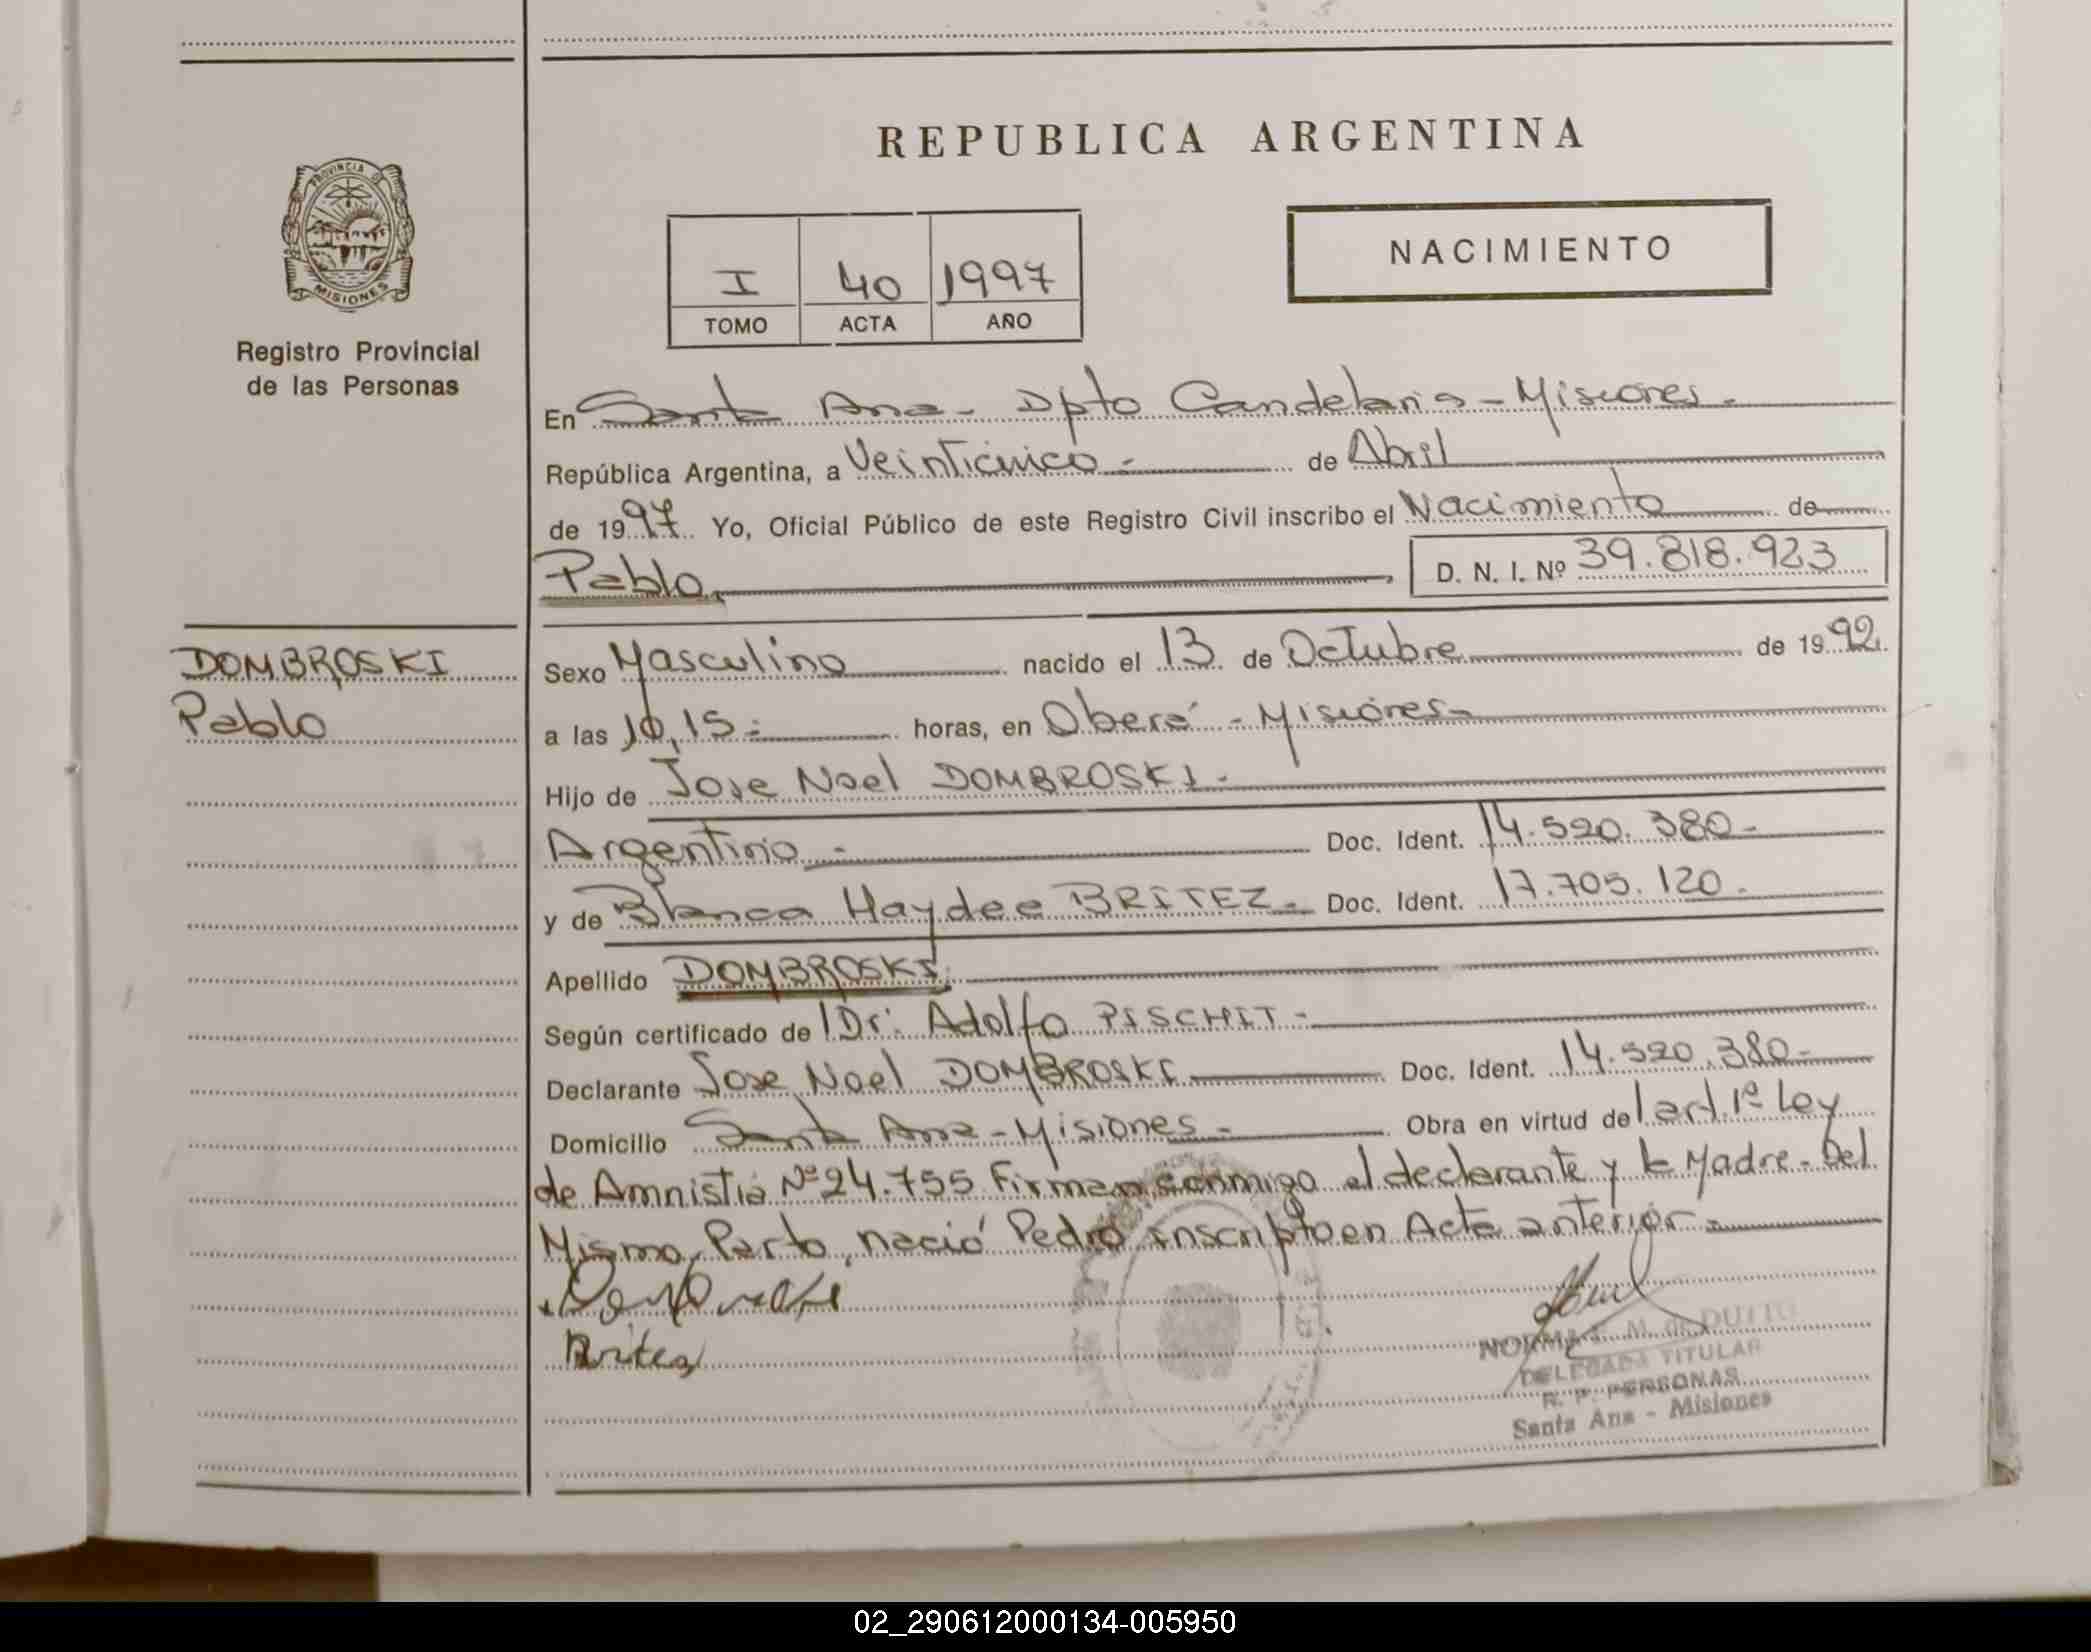 REPUBLICA ARGENTINA
PROVINCIA DE
MISIONES
Registro Provincial
de las Personas
NACIMIENTO
I 40 1997
TOMO ACTA AÑO
En Santa Ana - Dpto Candelaria - Misiones -
República Argentina, a Veinticinco - de Abril
de 1997 Yo, Oficial Público de este Registro Civil inscribo el Nacimiento de
Pablo, D. N. I. Nº 39.818.923
DOMBROSKI
Pablo
Sexo Masculino nacido el 13 de Octubre de 1992
a las 10,15 - horas, en Oberá - Misiones -
Hijo de Jose Noel DOMBROSKI -
Argentino - Doc. Ident. 14.520.380 -
y de Blanca Haydee BRITEZ - Doc. Ident. 17.705.120 -
Apellido DOMBROSKI
Según certificado de Dr. Adolfo PISCHIT -
Declarante Jose Noel DOMBROSKI Doc. Ident. 14.520.380 -
Domicilio Santa Ana - Misiones - Obra en virtud del art. 1º Ley
de Amnistia Nº 24.755 Firman conmigo el declarante y la Madre - Del
Mismo Parto, nació Pedro inscripto en Acta anterior -
Britez
NORMA M. de DUTTO
DELEGADA TITULAR
R. P. PERSONAS
Santa Ana - Misiones
02_290612000134-005950